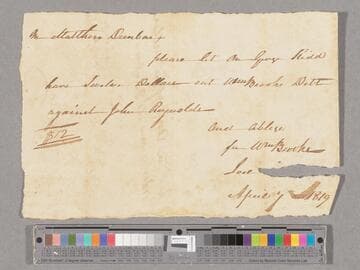 Mr Matthew Dunbar
please let Mr Geo Kidd
have Twelve Dollars out Wm Brooks Debt
against John Reynolds
$12
and oblige
for Wm Brooke
April 7 1819